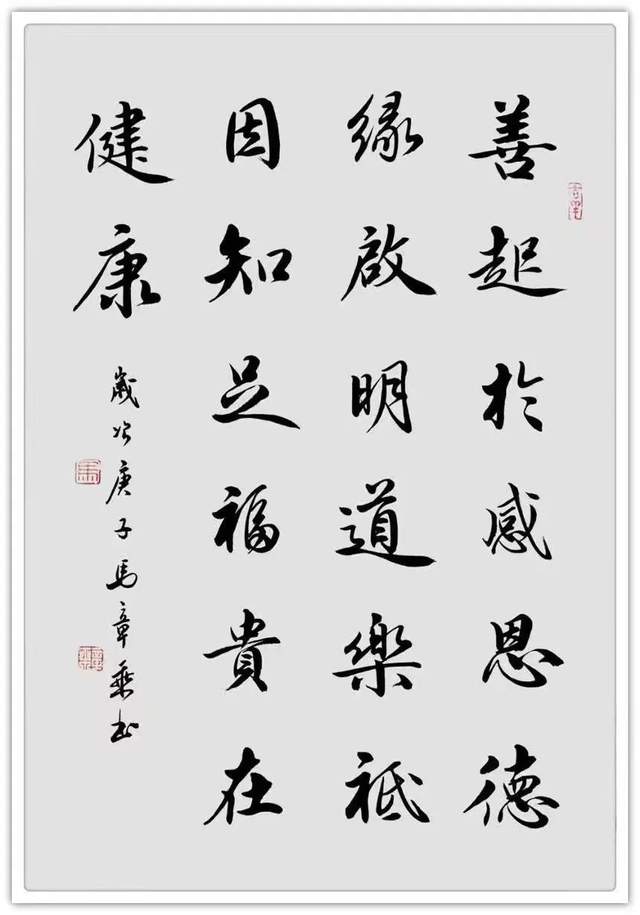 善起於感恩德
緣啟明道樂祗
因知足福貴在
健康
歲次庚子馬章乘书